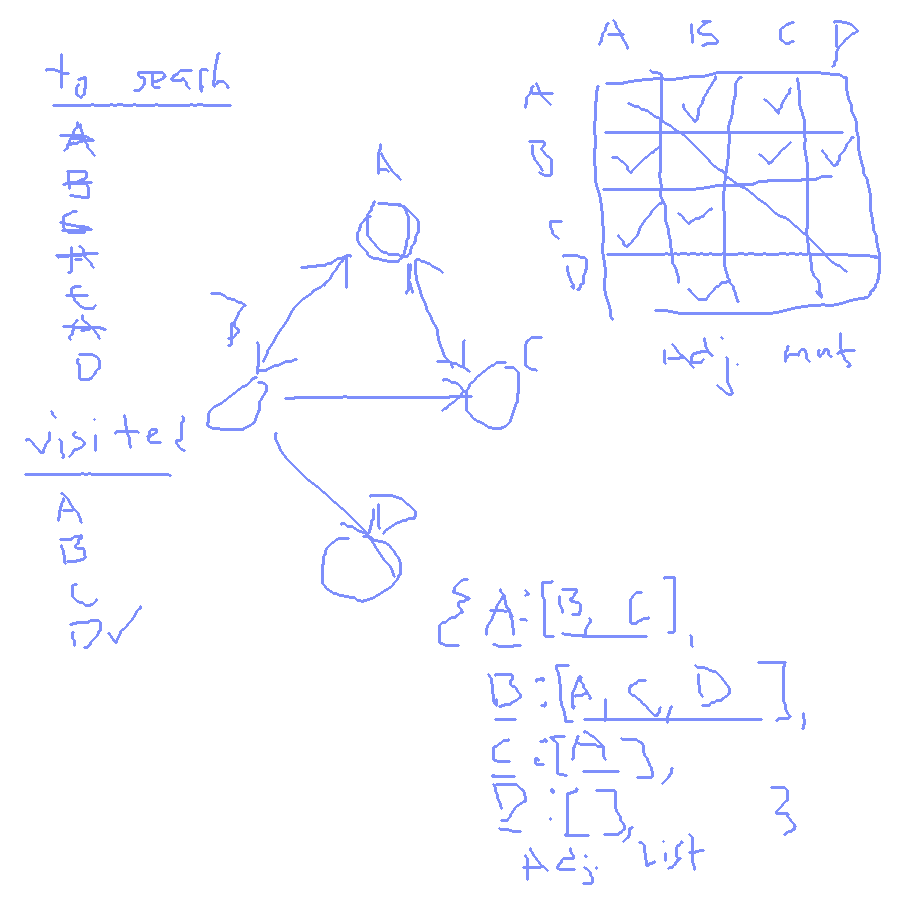 to search
A
B
C
A
C
A
D
visited
A
B
C
D✓
A
B
C
D
A B C D
A ✓ ✓
B ✓ ✓ ✓
C ✓ ✓
D ✓
Adj. mat
{ A:[B, C],
B:[A, C, D],
C:[A],
D:[], }
Adj. List